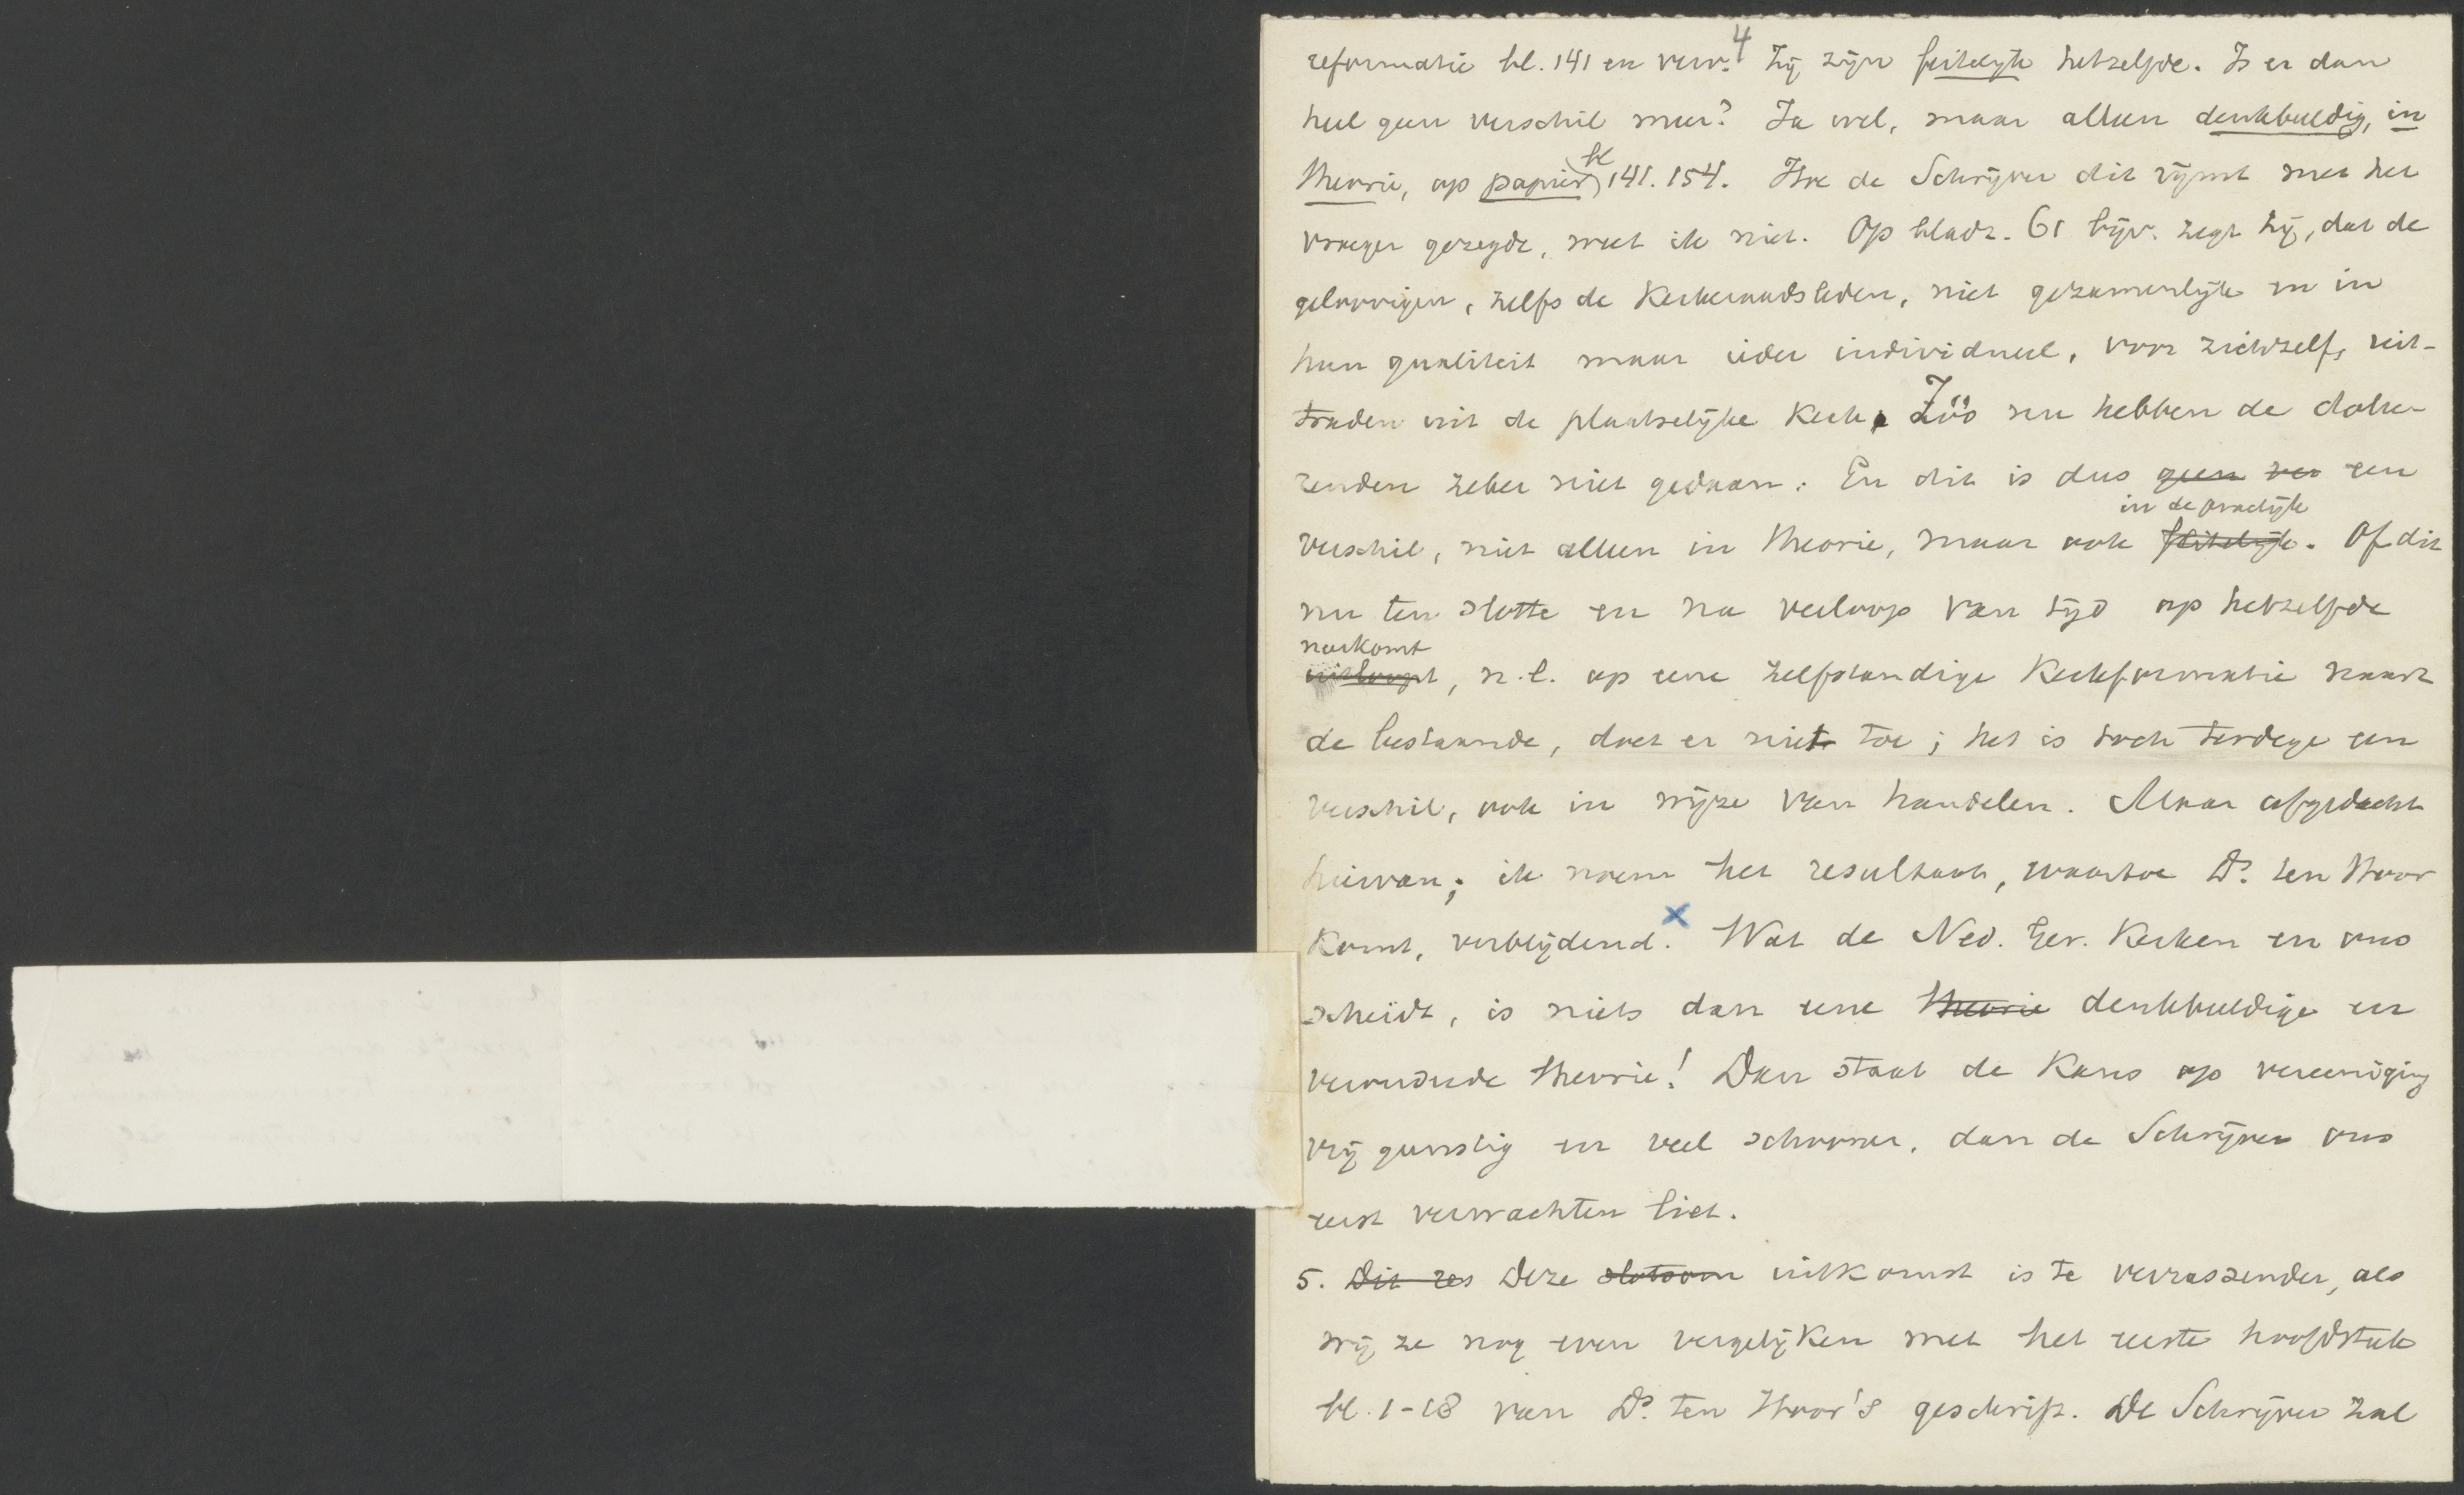 4
reformatie bl. 141 en verv. Zij zijn feitelijk hetzelfde. Is er dan
heel geen verschil meer? Ja wel, maar alleen denkbeeldig, in
theorie, op papier, bl 141. 154. Hoe de Schrijver dit rijmt met het
vroeger gezegde, weet ik niet. Op bladz. 61 bijv. zegt hij, dat de
geloovigen, zelfs de Kerkeraadsleden, niet gezamenlijk en in
hun qualiteit maar ieder individueel, voor zichzelf, uit-
traden uit de plaatselijke Kerk. Zóó nu hebben de dolee-
renden zeker niet gedaan. En dit is dus geen ver een
verschil, niet alleen in theorie, maar ook feitelijk in de practijk. Of dit
nu ten slotte en na verloop van tijd op hetzelfde
uitloopt neerkomt, n.l. op eene zelfstandige Kerkformatie naast
de bestaande, doet er niet toe; het is toch terdege een
verschil, ook in wijze van handelen. Maar afgedacht
hiervan; ik noem het resultaat, waartoe Ds. ten Hoor
komt, verblijdend. x Wat de Ned. Ger. Kerken en ons
scheidt, is niets dan eene theorie denkbeeldige en
verouderde theorie! Dan staat de Kans op vereeniging
vrij gunstig en veel schooner, dan de Schrijver ons
eerst verwachten liet.
5. Dit res Deze slotsom uitkomst is te verrassender, als
wij ze nog even vergelijken met het eerste hoofdstuk
bl. 1-18 van Ds. ten Hoor's geschrift. De Schrijver zal